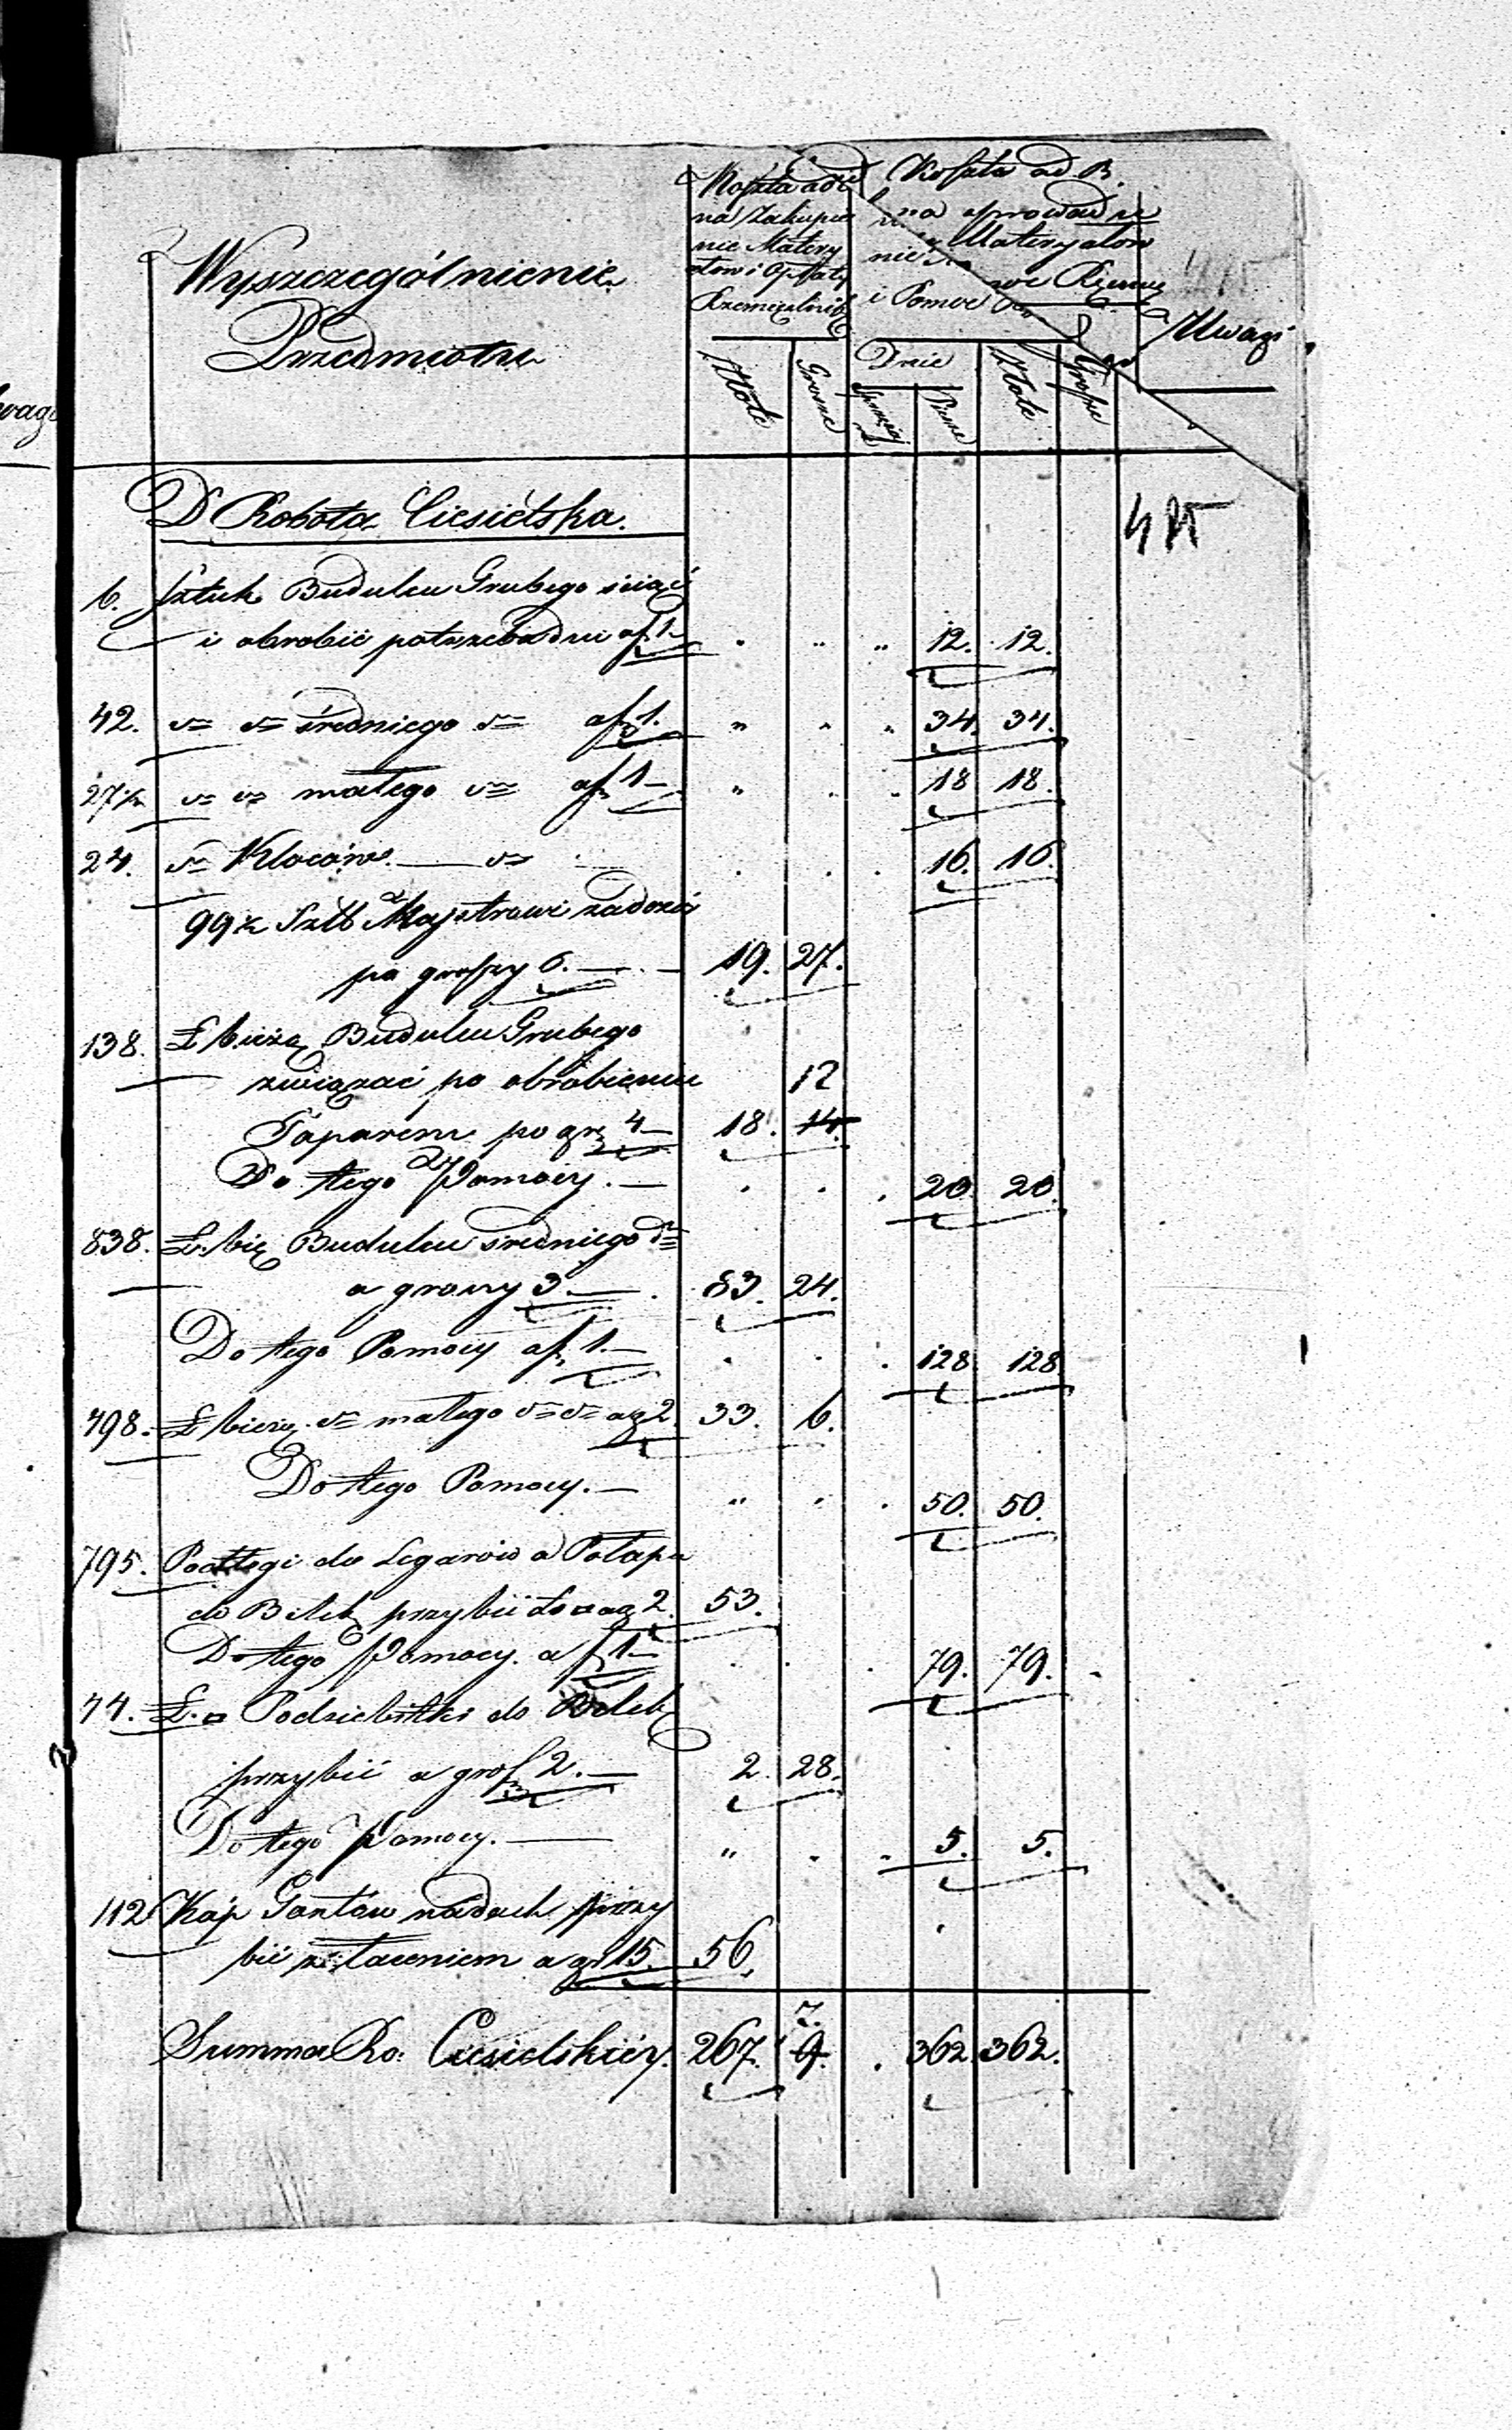 Wyszczególnienie
Przedmiotu
Koszta
na Zakupie
nie Matery
Rzemieślnik
Koszta od B.
na sprowadze
nie Materyalow
i Pomoc
Uwagi
Złote
Grosze
Dnie
Piesze
Złote
Grosze
D Robota Ciesielska.
425
6. Sztuk Budulcu Grubego ściąć
i obrobić potrzeba dni af 1.— 12. 12.
42. średniego af 1. 34. 34.
27½ małego af 1— 18 18.
24. Kloców — 16. 16.
99½ Sztk Majstrowi za dozór
po groszy 6. — 19. 27.
138. Ł bieżą Budulcu Grubego
związać po obrobieniu 12
po gr 4— 18. 14.
Do tego Pomocy. — 20. 20.
838. Ł. bie Budulcu średniego
a groszy 3.— 83. 24.
Do tego Pomocy af 1.— 128. 128
498. Ł bieżą małego ag 2. 33. 6.
Do tego Pomocy.— 50. 50.
795. Podłogi do Legarów a Pułapu
do Belek przybić Ło □ ag 2. 53.
Do tego Pomocy. af 1— 79. 79.
44. Ł. □ Podsiebitki do Belek
przybić a gros 2.— 2. 28.
Do tego Pomocy.— 5. 5.
112 Kóp Gontów na dach przy
bić z łaceniem a gr 15. 56.
7.
Summa Ro: Ciesielskiéy. 267. 9. 362 362.